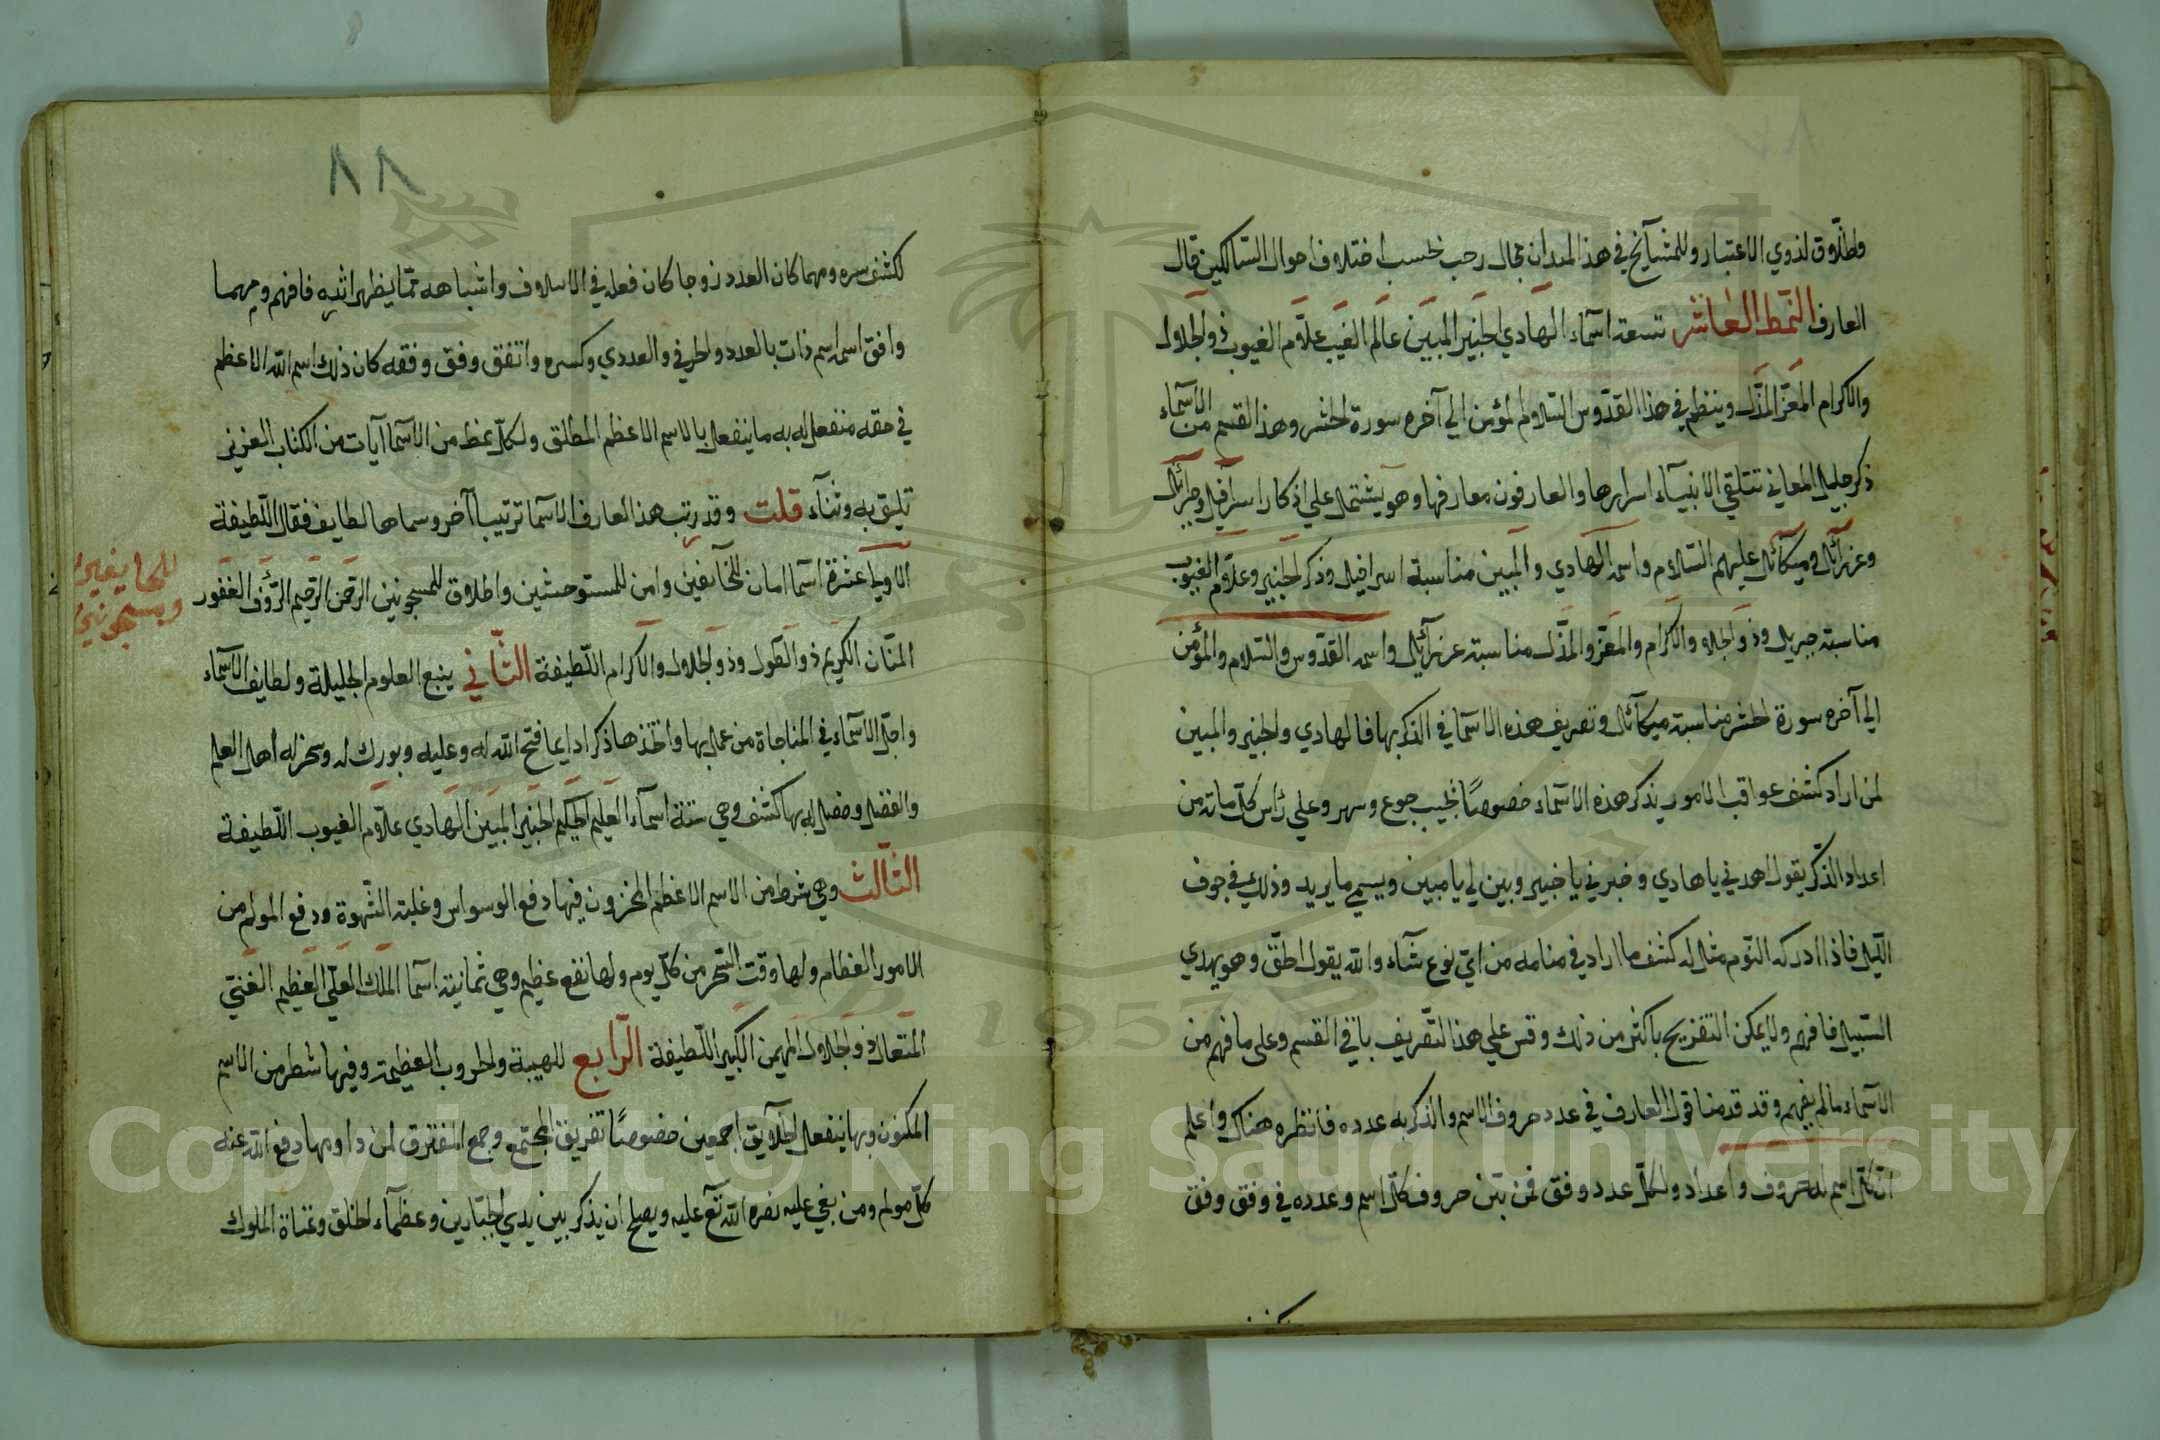 ولطلاق لذوي الاعتبار وللمشآيخ في هذا الميدان مجال رحب بحسب اختلاف احوال السالكين قال
العارف النمط العاشر تسعة اسماء الهادي الخبير المبين عالم الغيب علام الغيوب ذو الجلال
والاكرام المعز المذل وينظم في هذا القدوس السلام المؤمن الي آخره سورة الحشر وهذا القسم من الاسماء
ذكر جليل المعاني تتلقي الانبياء اسرارها والعارفون معارفها وهو يشتمل علي اذكار اسرافيل وجبرآئيل
وعزرآئيل وميكآئيل عليهم السلام واسمه الهادي والمبين مناسبة اسرافيل وذكر الخبير وعلام الغيوب
مناسبة جبريل وذو الجلال والاكرام والمعز والمذل مناسبة عزرآئيل واسمه القدوس والسلام والمؤمن
الي آخره سورة الحشر مناسبة ميكآئيل وتصريف هذه الاسما في الذكر بها فالهادي والخبير والمبين
لمن اراد كشف عواقب الامور يذكر هذه الاسماء خصوصًا بجيب جوع وسهر وعلي رأس كل مائة من
اعداد الذكر يقول اهدني يا هادي وخبرني يا خبير وبين لي يا مبين ويسمي ما يريد وذلك في جوف
الليل فاذا ادركه النوم مثل له كشف ما اراد في منامه من اي نوع شآء والله يقول الحق وهو يهدي
السبيل فافهم ولا يمكن التفريح باكثر من ذلك وقس علي هذا التصريف باقي القسم وعلي ما فهم من
الاسماء ما لم يفهم وقد قدمنا قول العارف في عدد حروف الاسم والذكر به عدده فانظره هناك واعلم
ان كل اسم له حروف واعداد ولكل عدد وفق فمن بين حروف كل اسم وعدده في وفق وفق
كشف
٨٨
لكشف سره ومهما كان العدد زوجا كان فعله في الائتلاف واشباهه مما يظهر اثره فافهم ومهما
وافق اسمه اسم ذات بالعدد والحرفي والعددي وكسره واتفق وفق وفقه كان ذلك اسم الله الاعظم
في حقه منفعل له به ما ينفعل بالاسم الاعظم المطلق ولكل نمط من الاسما آيات من الكتاب العزيز
تليق به وثنآء قلت وقد رتب هذا العارف الاسما ترتيبا آخر وسماها لطايف فقال اللطيفة
الاولي عشرة اسما امان للخآيفين وامن للمستوحشين واطلاق للمسجونين الرحمن الرحيم الرؤف الغفور
المنان الكريم ذو الطول وذو الجلال والاكرام اللطيفة الثاني ينبع العلوم الجليلة ولطايف الاسماء
واجل الاسماء في المناجاة من عمل بها واتخذها ذكرا دايما فتح الله له وعليه وبورك له وسخر له اهل العلم
والفضل وحصل له بها كشف وهي ستة اسماء العليم الحكيم الخبير المبين الهادي علام الغيوب اللطيفة
الثالث وهي شرط من الاسم الاعظم المخزون فيها دفع الوسواس وغلبة الشهوة ودفع المولم من
الامور العظام ولها وقت السحر من كل يوم ولها نفع عظيم وهي ثمانية اسما الملك العلي العظيم الغني
المتعال ذو الجلال المهيمن الكبير اللطيفة الرابع للهيبة والحروب العظيمة وفيها شطر من الاسم
المكنون وبها ينفعل الخلآيق اجمعين خصوصًا تفريق المجتمع وجمع المفترق لمن داومها دفع الله عنه
كل مولم ومن بغي عليه نصره الله تع عليه ويصلح ان يذكر بين يدي الجبارين وعظمآء الخلق وعتاة الملوك
Copyright © King Saud University
1957